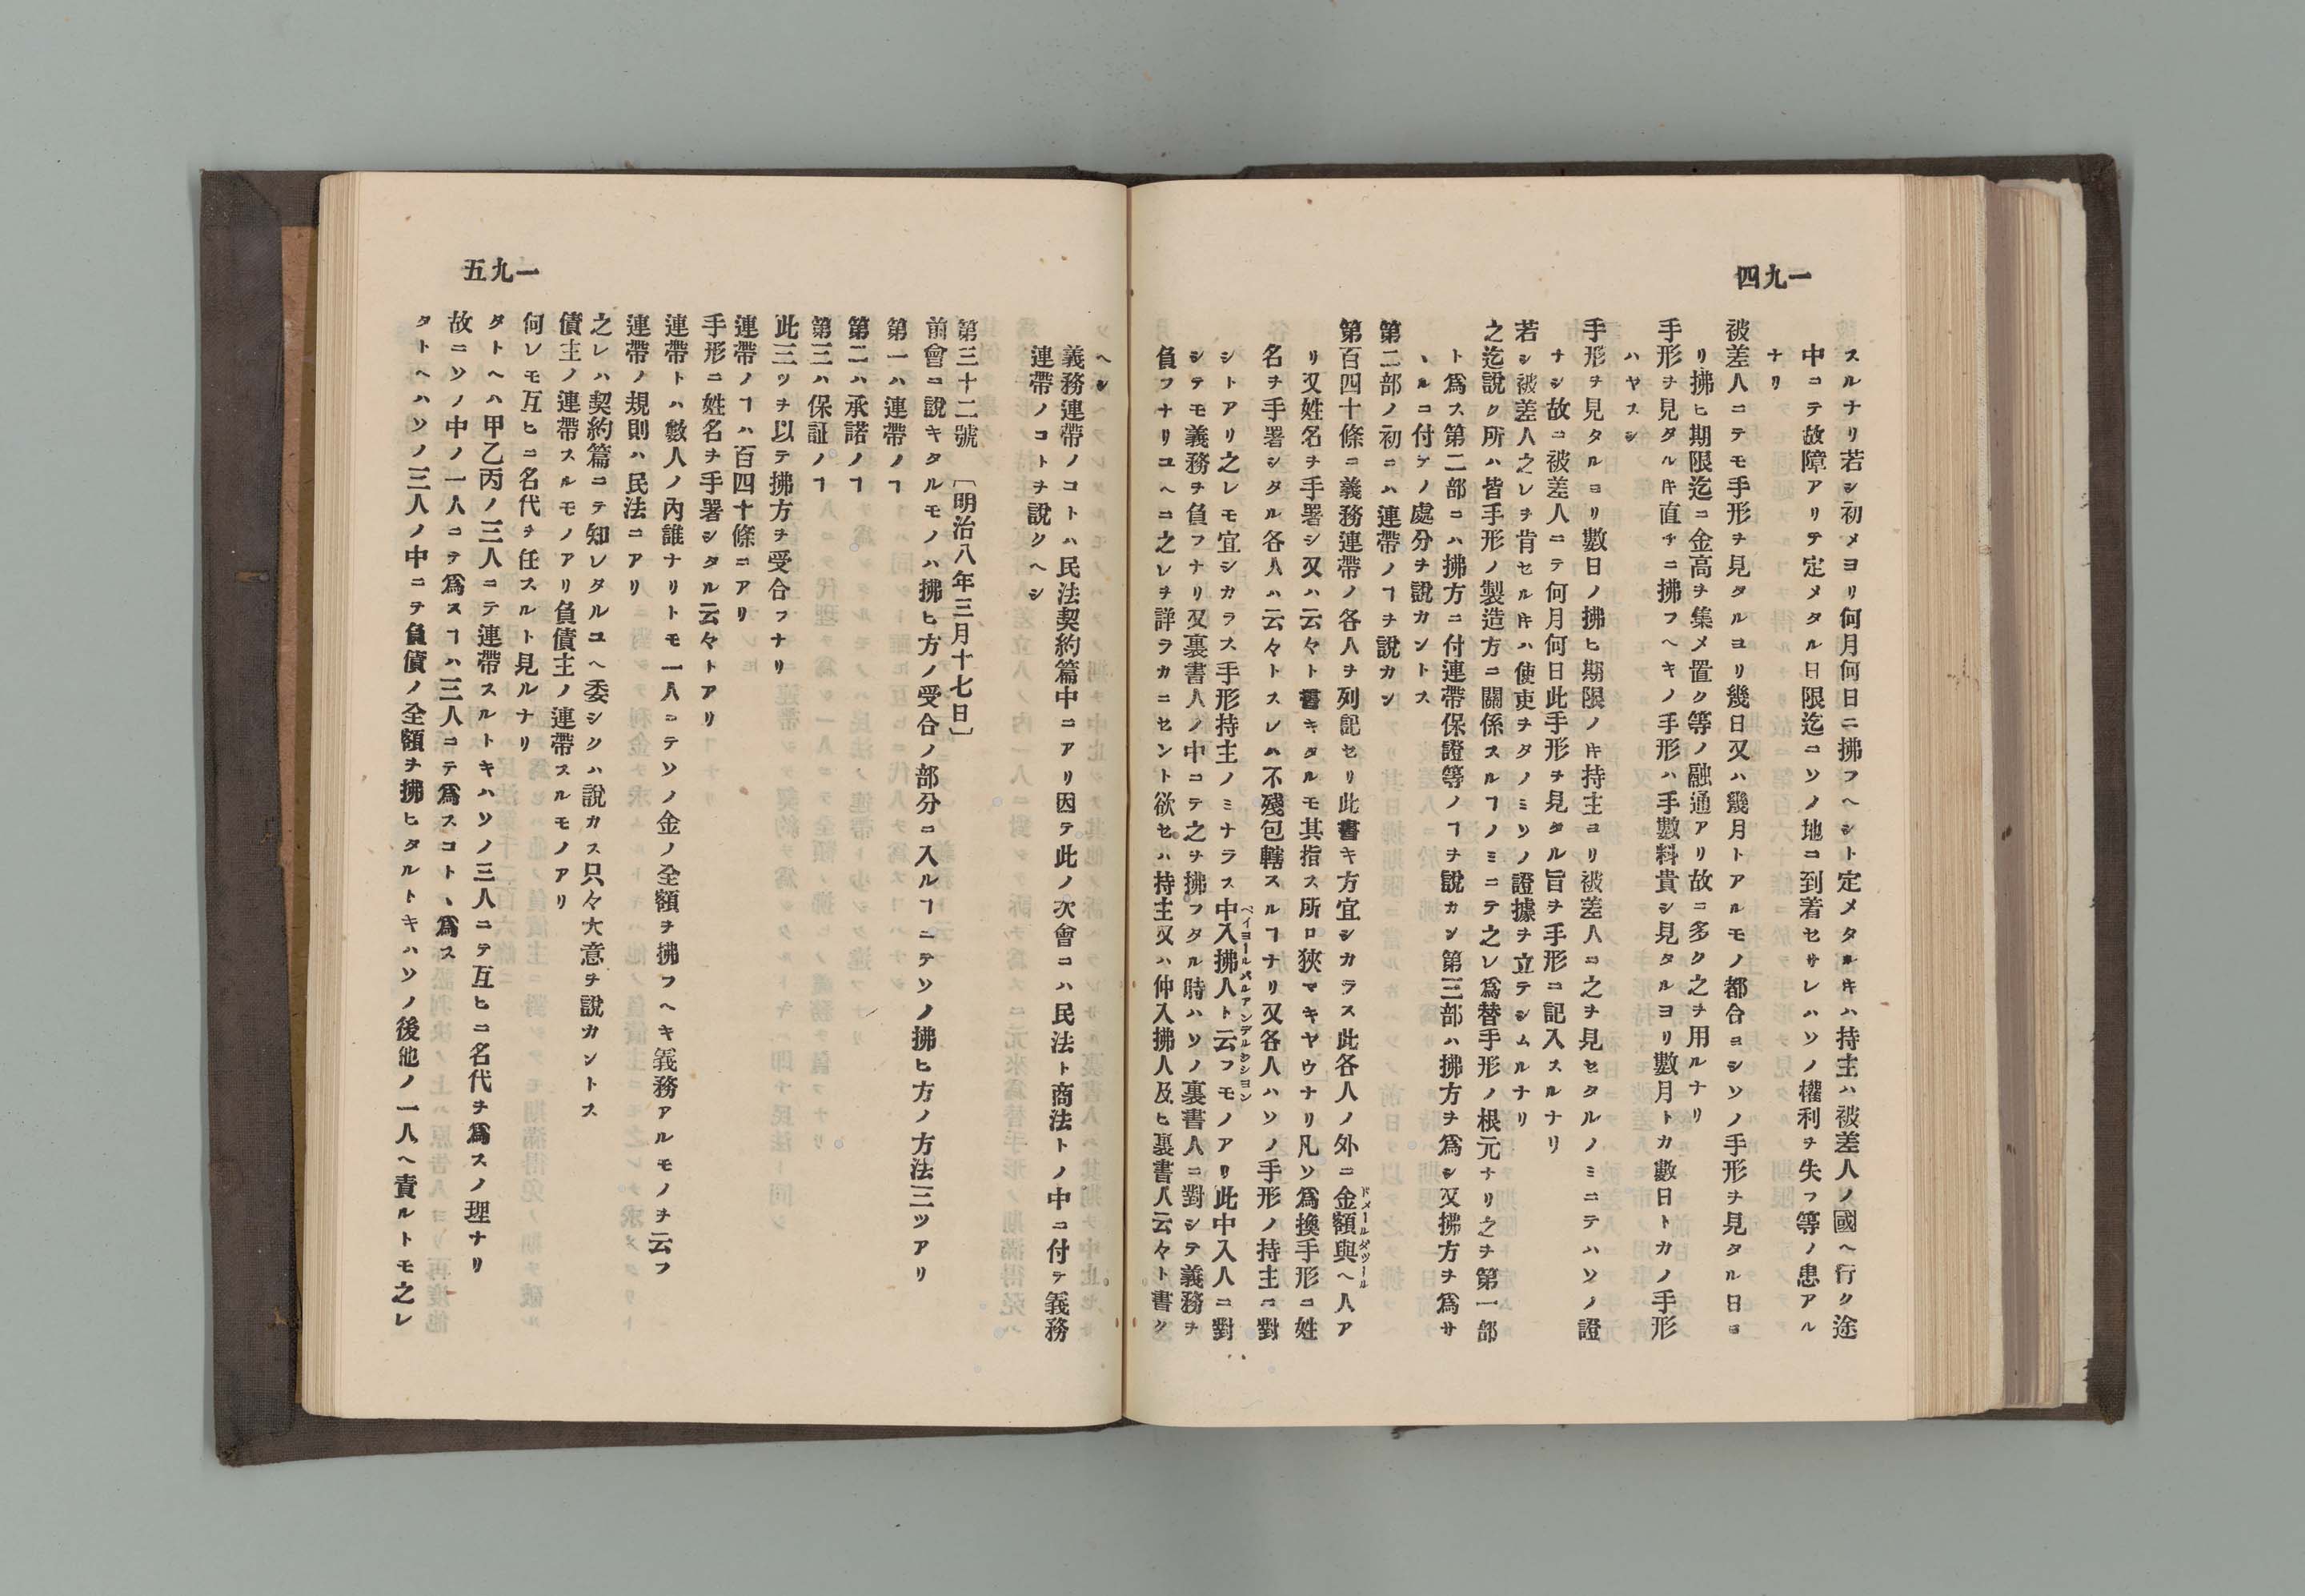 一九四
スルナリ若シ初メヨリ何月何日ニ拂フヘシト定メタルキハ持主ハ被差人ノ國ヘ行ク途
中ニテ故障アリテ定メタル日限迄ニソノ地ニ到着セサレハソノ權利ヲ失フ等ノ患アル
ナリ
被差人ニテモ手形ヲ見タルヨリ幾日又ハ幾月トアルモノ都合ヨシソノ手形ヲ見タル日ヨ
リ拂ヒ期限迄ニ金高ヲ集メ置ク等ノ融通アリ故ニ多ク之ヲ用ルナリ
手形ヲ見タルキ直チニ拂フヘキノ手形ハ手數料貴シ見タルヨリ數月トカ數日トカノ手形
ハヤスシ
手形ヲ見タルヨリ數日ノ拂ヒ期限ノキ持主ヨリ被差人ニ之ヲ見セタルノミニテハソノ證
ナシ故ニ被差人ニテ何月何日此手形ヲ見タル旨ヲ手形ニ記入スルナリ
若シ被差人之レヲ肯セルキハ使吏ヲタノミソノ證據ヲ立テシムルナリ
之迄說ク所ハ皆手形ノ製造方ニ關係スルヿノミニテ之レ爲替手形ノ根元ナリ之ヲ第一部
ト爲ス第二部ニハ拂方ニ付連帶保證等ノヿヲ說カン第三部ハ拂方ヲ爲シ又拂方ヲ爲サ
ヽルニ付テノ處分ヲ說カントス
第二部ノ初ニハ連帶ノヿヲ說カン
第百四十條ニ義務連帶ノ各人ヲ列記セリ此書キ方宜シカラス此各人ノ外ニ金額與ヘ人ア
ドメールダツール
リ又姓名ヲ手署シ又ハ云々ト書キタルモ其指ス所ロ狹マキヤウナリ凡ソ爲換手形ニ姓
名ヲ手署シタル各人ハ云々トスレハ不殘包轄スルヿナリ又各人ハソノ手形ノ持主ニ對
シトアリ之レモ宜シカラス手形持主ノミナラス中入拂人ト云フモノアリ此中入人ニ對
ペイヨールパルアンデルカシヨン
シテモ義務ヲ負フナリ又裏書人ノ中ニテ之ヲ拂フタル時ハソノ裏書人ニ對シテ義務ヲ
負フナリユヘニ之レヲ詳ラカニセント欲セハ持主又ハ仲入拂人及ヒ裏書人云々ト書ク
一九五
ヘシ
義務連帶ノコトハ民法契約篇中ニアリ因テ此ノ次會ニハ民法ト商法トノ中ニ付テ義務
連帶ノコトヲ說クヘシ
第三十二號 〔明治八年三月十七日〕
前會ニ說キタルモノハ拂ヒ方ノ受合ノ部分ニ入ルヿニテソノ拂ヒ方ノ方法三ツアリ
第一ハ連帶ノヿ
第二ハ承諾ノヿ
第三ハ保証ノヿ
此三ツヲ以テ拂方ヲ受合フナリ
連帶ノヿハ百四十條ニアリ
手形ニ姓名ヲ手署シタル云々トアリ
連帶トハ數人ノ內誰ナリトモ一人ニテソノ金ノ全額ヲ拂フヘキ義務アルモノヲ云フ
連帶ノ規則ハ民法ニアリ
之レハ契約篇ニテ知レタルユヘ委シクハ說カス只々大意ヲ說カントス
債主ノ連帶スルモノアリ負債主ノ連帶スルモノアリ
何レモ互ヒニ名代ヲ任スルト見ルナリ
タトヘハ甲乙丙ノ三人ニテ連帶スルトキハソノ三人ニテ互ヒニ名代ヲ爲スノ理ナリ
故ニソノ中ノ一人ニテ爲スヿハ三人ニテ爲スコトヽ爲ス
タトヘハソノ三人ノ中ニテ負債ノ全額ヲ拂ヒタルトキハソノ後他ノ一人ヘ責ルトモ之レ